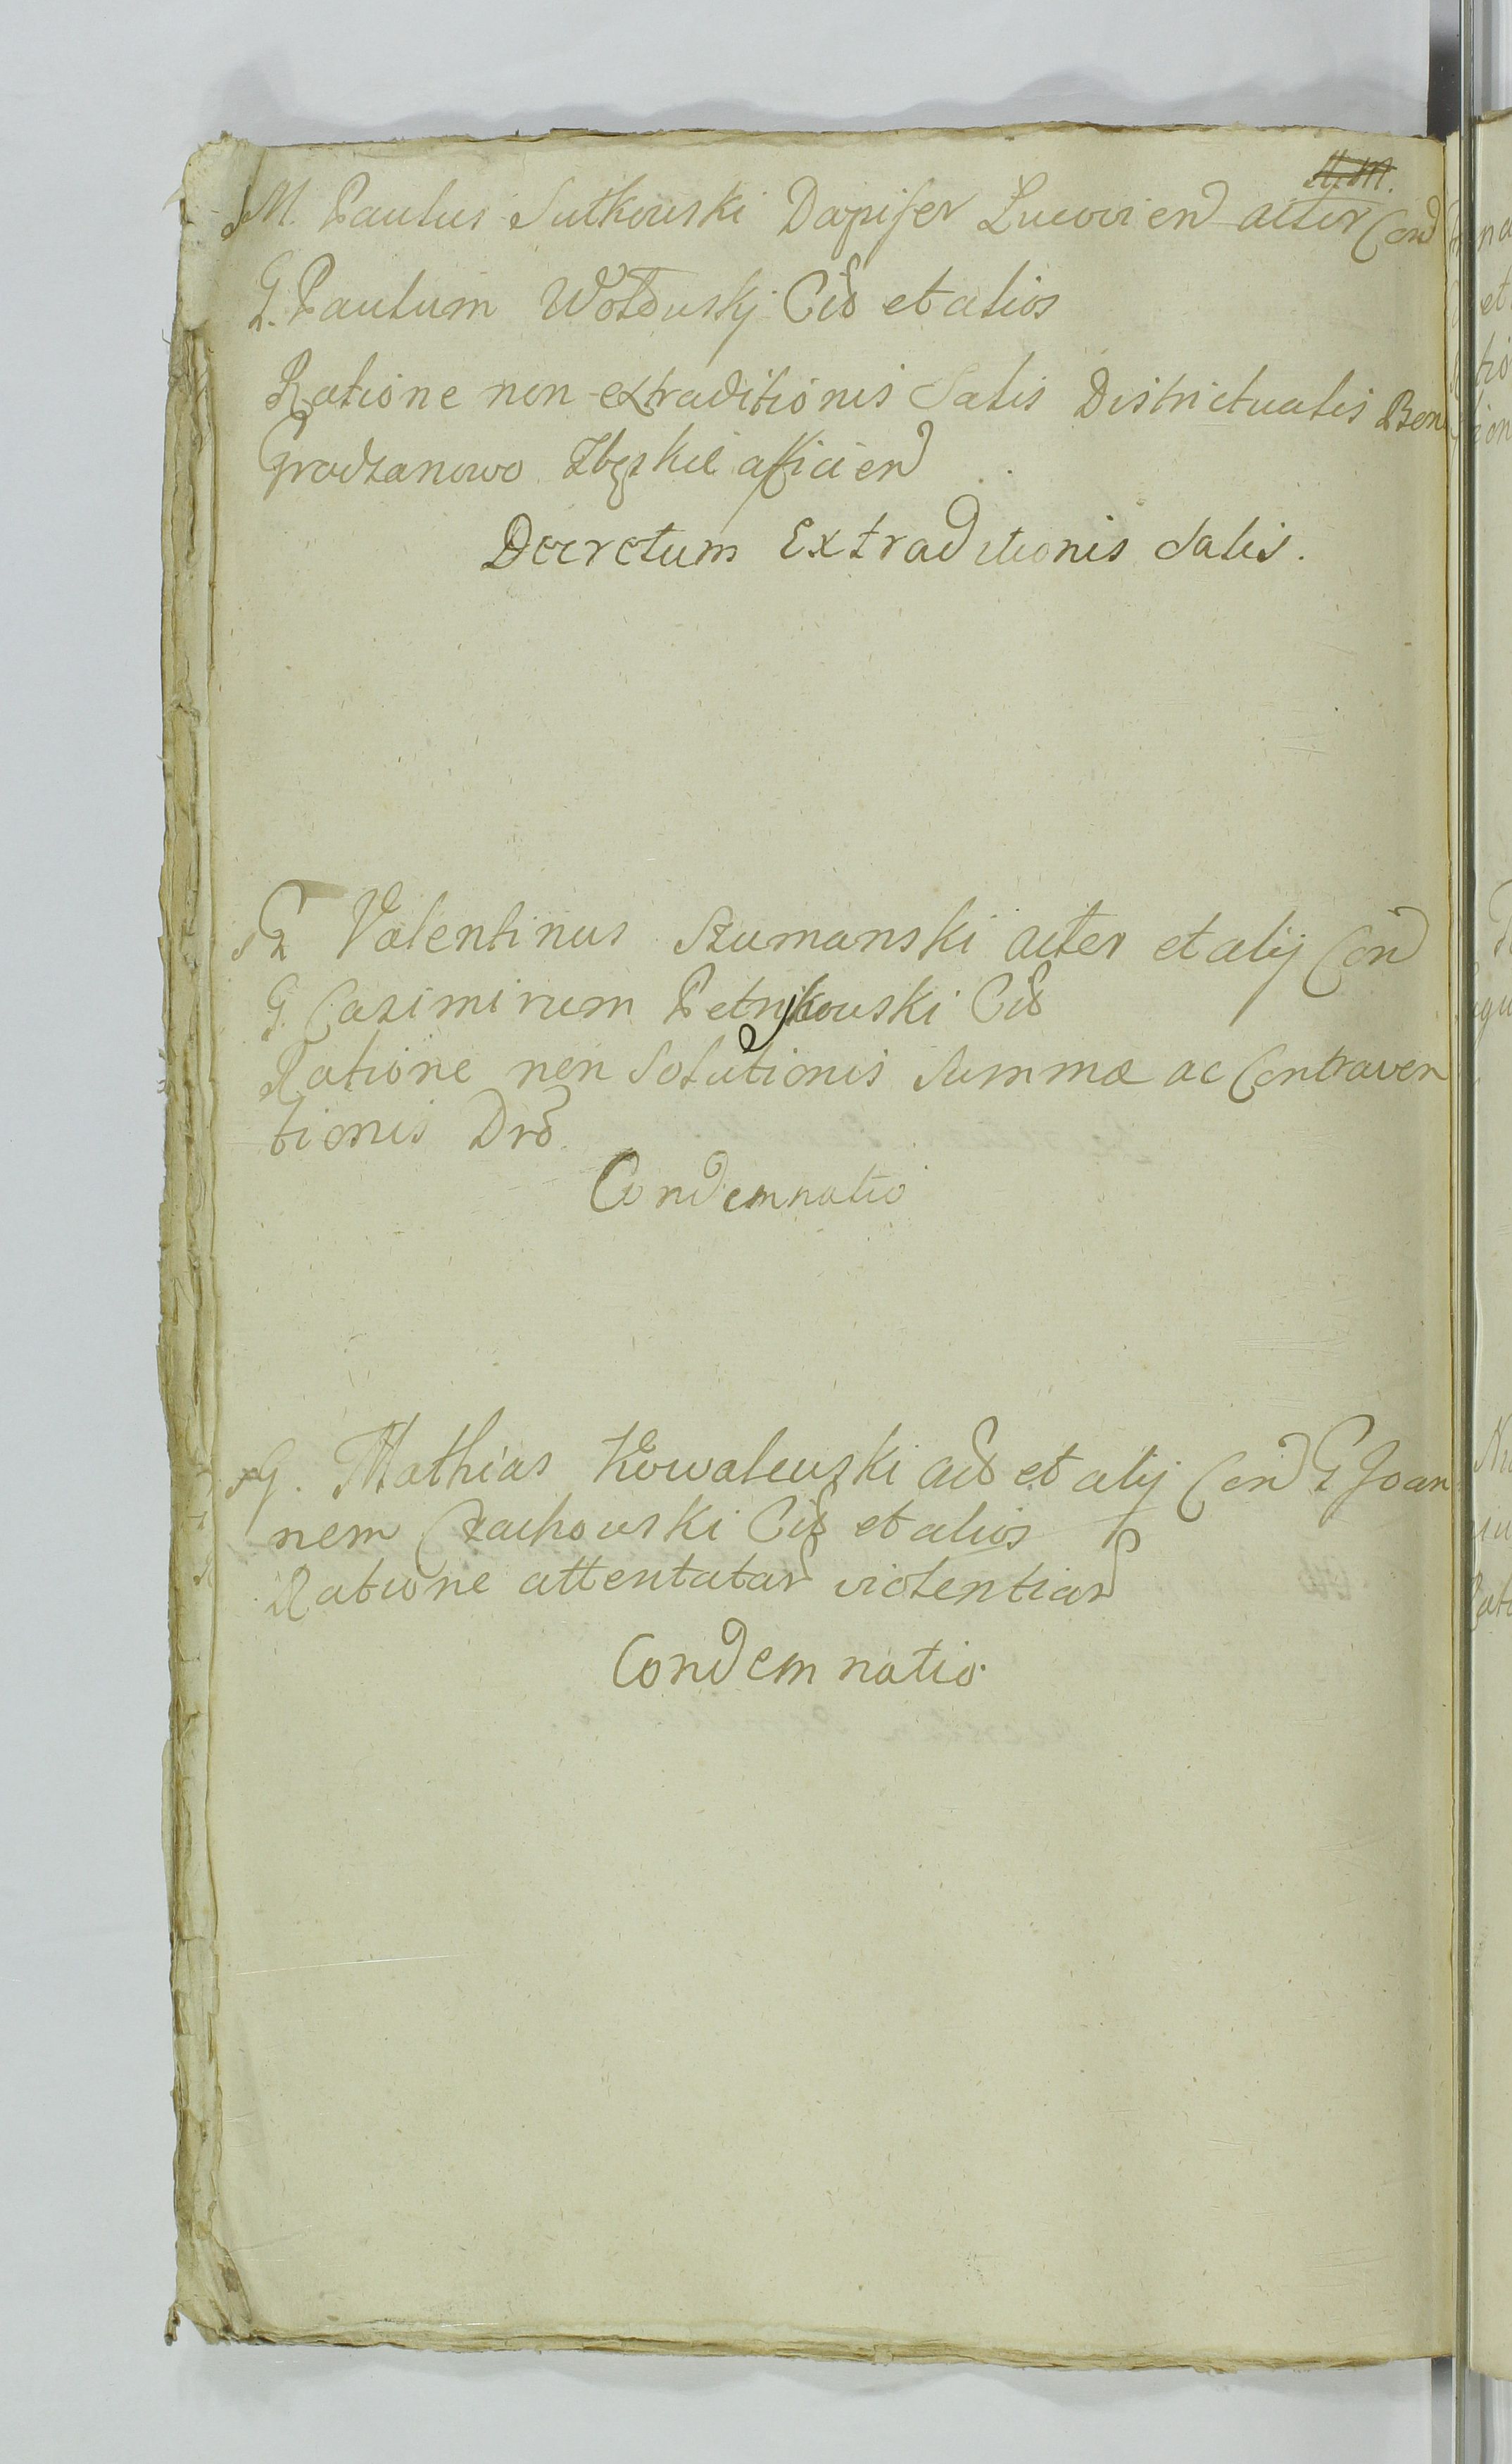 M. Paulus Sutkowski Dapifer actor Con
G. Paulum Wołowskj Cit et alios
Ratione non extraditionis Salis Districtualis Bon
Gradzanowo Zbęskie afficien
Decretum Extraditionis Salis.
G Valentinus Szumanski acter et alij Con
G. Casimirum Petrykowski Cit
Ratione non Solutionis Summæ ac Contraven
tionis
Condemnatio
G. Mathias Kowalewski act et alij Con G Joan
nem Czachowski Cit et alios
Ratione attentatar violentiar
Condemnatio